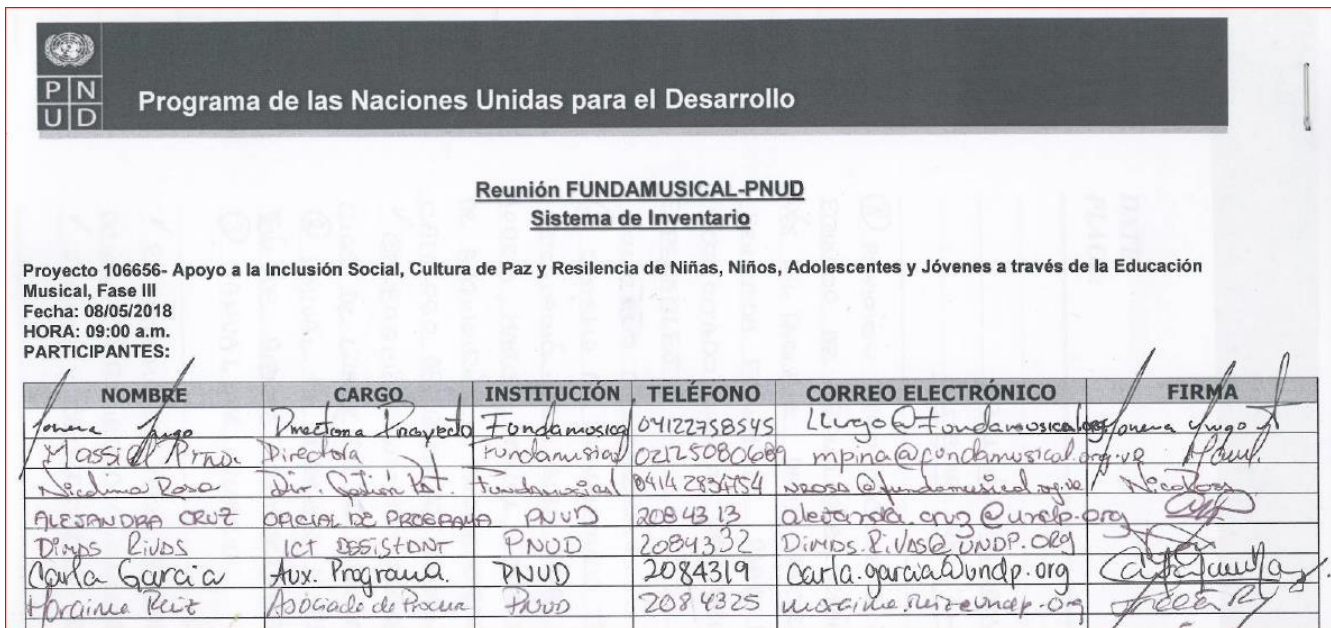 PNUD
Programa de las Naciones Unidas para el Desarrollo
Reunión FUNDAMUSICAL-PNUD
Sistema de Inventario
Proyecto 106656- Apoyo a la Inclusión Social, Cultura de Paz y Resilencia de Niñas, Niños, Adolescentes y Jóvenes a través de la Educación
Musical, Fase III
Fecha: 08/05/2018
HORA: 09:00 a.m.
PARTICIPANTES:
NOMBRE CARGO INSTITUCIÓN TELÉFONO CORREO ELECTRÓNICO FIRMA
Lugo Directora Proyecto Fundamusical 04122758545
Massiel Directora Fundamusical 02125080689 mpina@fundamusical.org.ve
Nicolina Rosa Dir. Gestión Fundamusical 04142834754 nrosa@fundamusical.org.ve
ALEJANDRA CRUZ OFICIAL DE PROGRAMA PNUD 2084313 alejandra.cruz@undp.org
Rivas ICT ASSISTANT PNUD 2084332
Carla Garcia Aux. Programa. PNUD 2084319 carla.garcia@undp.org
Moraima Ruiz Asociado de Procura PNUD 2084325 moraima.ruiz@undp.org